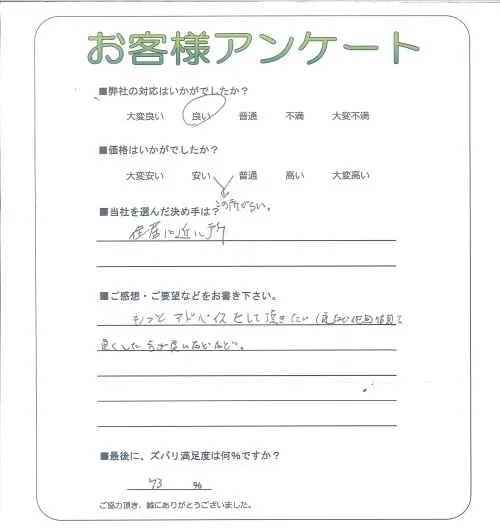 お客様アンケート
■弊社の対応はいかがでしたか？
大変良い 良い 普通 不満 大変不満
■価格はいかがでしたか？
大変安い 安い 普通 高い 大変高い
この所ぐらい。
■当社を選んだ決め手は？
住居に近い所
■ご感想・ご要望などをお書き下さい。
もっとアドバイスをして頂きたい
良くした方が良いなどなど。
■最後に、ズバリ満足度は何％ですか？
93 %
ご協力頂き、誠にありがとうございました。